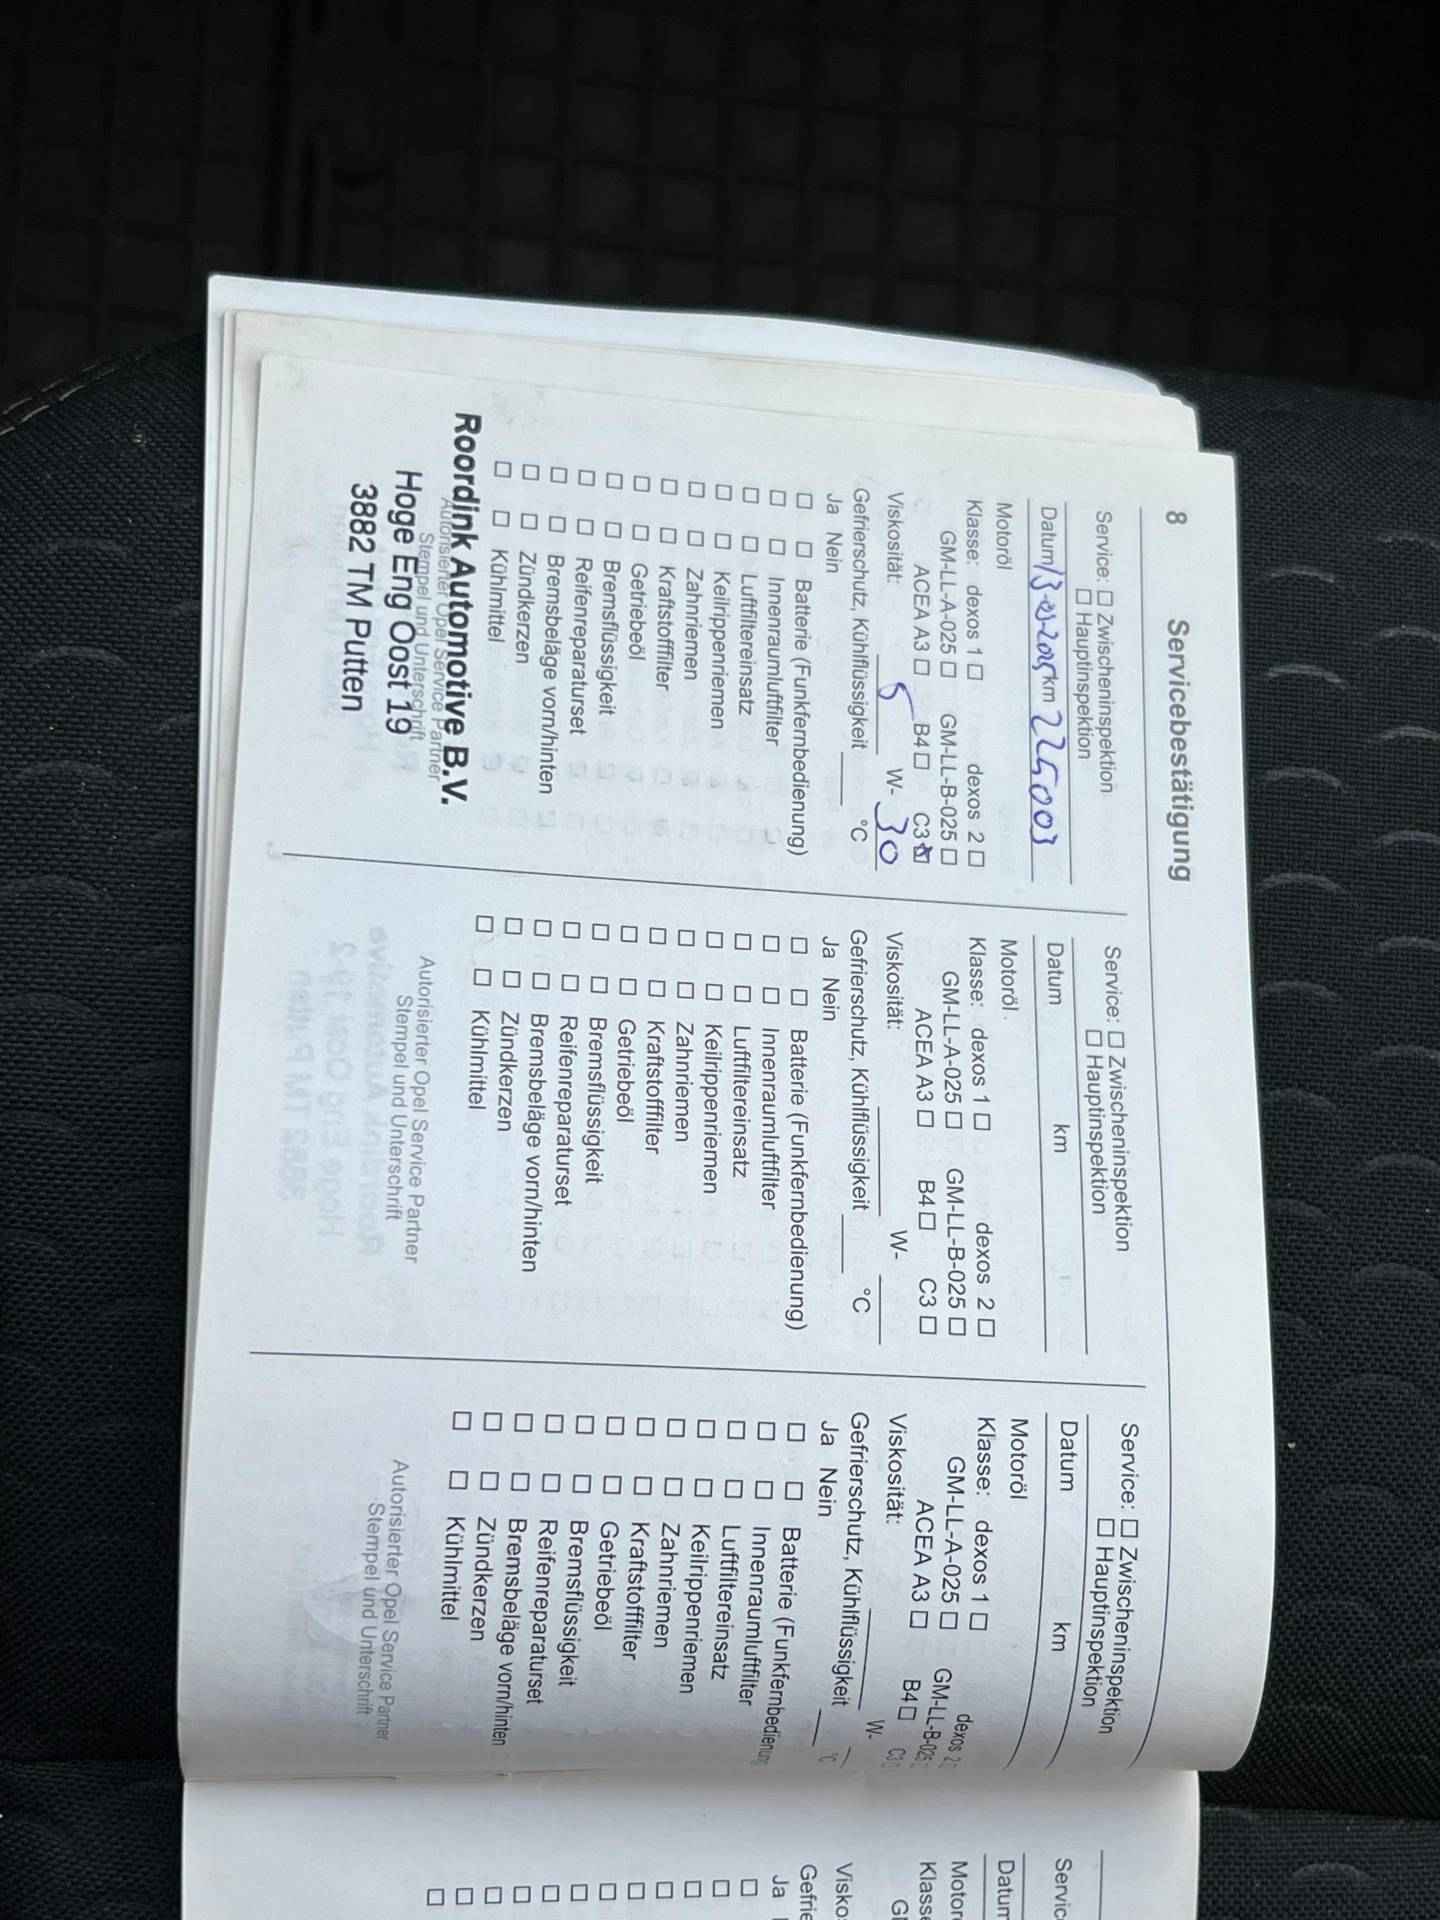 8 Servicebestätigung
Service: □ Zwischeninspektion
□ Hauptinspektion
Datum km 225003
Motoröl
Klasse: dexos 1 □ dexos 2 □
GM-LL-A-025 □ GM-LL-B-025 □
ACEA A3 □ B4 □ C3 ☒
Viskosität: 5 W- 30
Gefrierschutz, Kühlflüssigkeit ____ °C
Ja Nein
□ □ Batterie (Funkfernbedienung)
□ □ Innenraumluftfilter
□ □ Luftfiltereinsatz
□ □ Keilrippenriemen
□ □ Zahnriemen
□ □ Kraftstofffilter
□ □ Getriebeöl
□ □ Bremsflüssigkeit
□ □ Reifenreparaturset
□ □ Bremsbeläge vorn/hinten
□ □ Zündkerzen
□ □ Kühlmittel
Roordink Automotive B.V.
Autorisierter Opel Service Partner
Stempel und Unterschrift
Hoge Eng Oost 19
3882 TM Putten
Service: □ Zwischeninspektion
□ Hauptinspektion
Datum km
Motoröl
Klasse: dexos 1 □ dexos 2 □
GM-LL-A-025 □ GM-LL-B-025 □
ACEA A3 □ B4 □ C3 □
Viskosität: ____ W- ____
Gefrierschutz, Kühlflüssigkeit ____ °C
Ja Nein
□ □ Batterie (Funkfernbedienung)
□ □ Innenraumluftfilter
□ □ Luftfiltereinsatz
□ □ Keilrippenriemen
□ □ Zahnriemen
□ □ Kraftstofffilter
□ □ Getriebeöl
□ □ Bremsflüssigkeit
□ □ Reifenreparaturset
□ □ Bremsbeläge vorn/hinten
□ □ Zündkerzen
□ □ Kühlmittel
Autorisierter Opel Service Partner
Stempel und Unterschrift
Service: □ Zwischeninspektion
□ Hauptinspektion
Datum km
Motoröl
Klasse: dexos 1 □ dexos 2 □
GM-LL-A-025 □ GM-LL-B-025 □
ACEA A3 □ B4 □ C3 □
Viskosität: ____ W- ____
Gefrierschutz, Kühlflüssigkeit ____ °C
Ja Nein
□ □ Batterie (Funkfernbedienung
□ □ Innenraumluftfilter
□ □ Luftfiltereinsatz
□ □ Keilrippenriemen
□ □ Zahnriemen
□ □ Kraftstofffilter
□ □ Getriebeöl
□ □ Bremsflüssigkeit
□ □ Reifenreparaturset
□ □ Bremsbeläge vorn/hinten
□ □ Zündkerzen
□ □ Kühlmittel
Autorisierter Opel Service Partner
Stempel und Unterschrift
Servic
Datum
Motor
Klasse
Visko
Gefrie
Ja